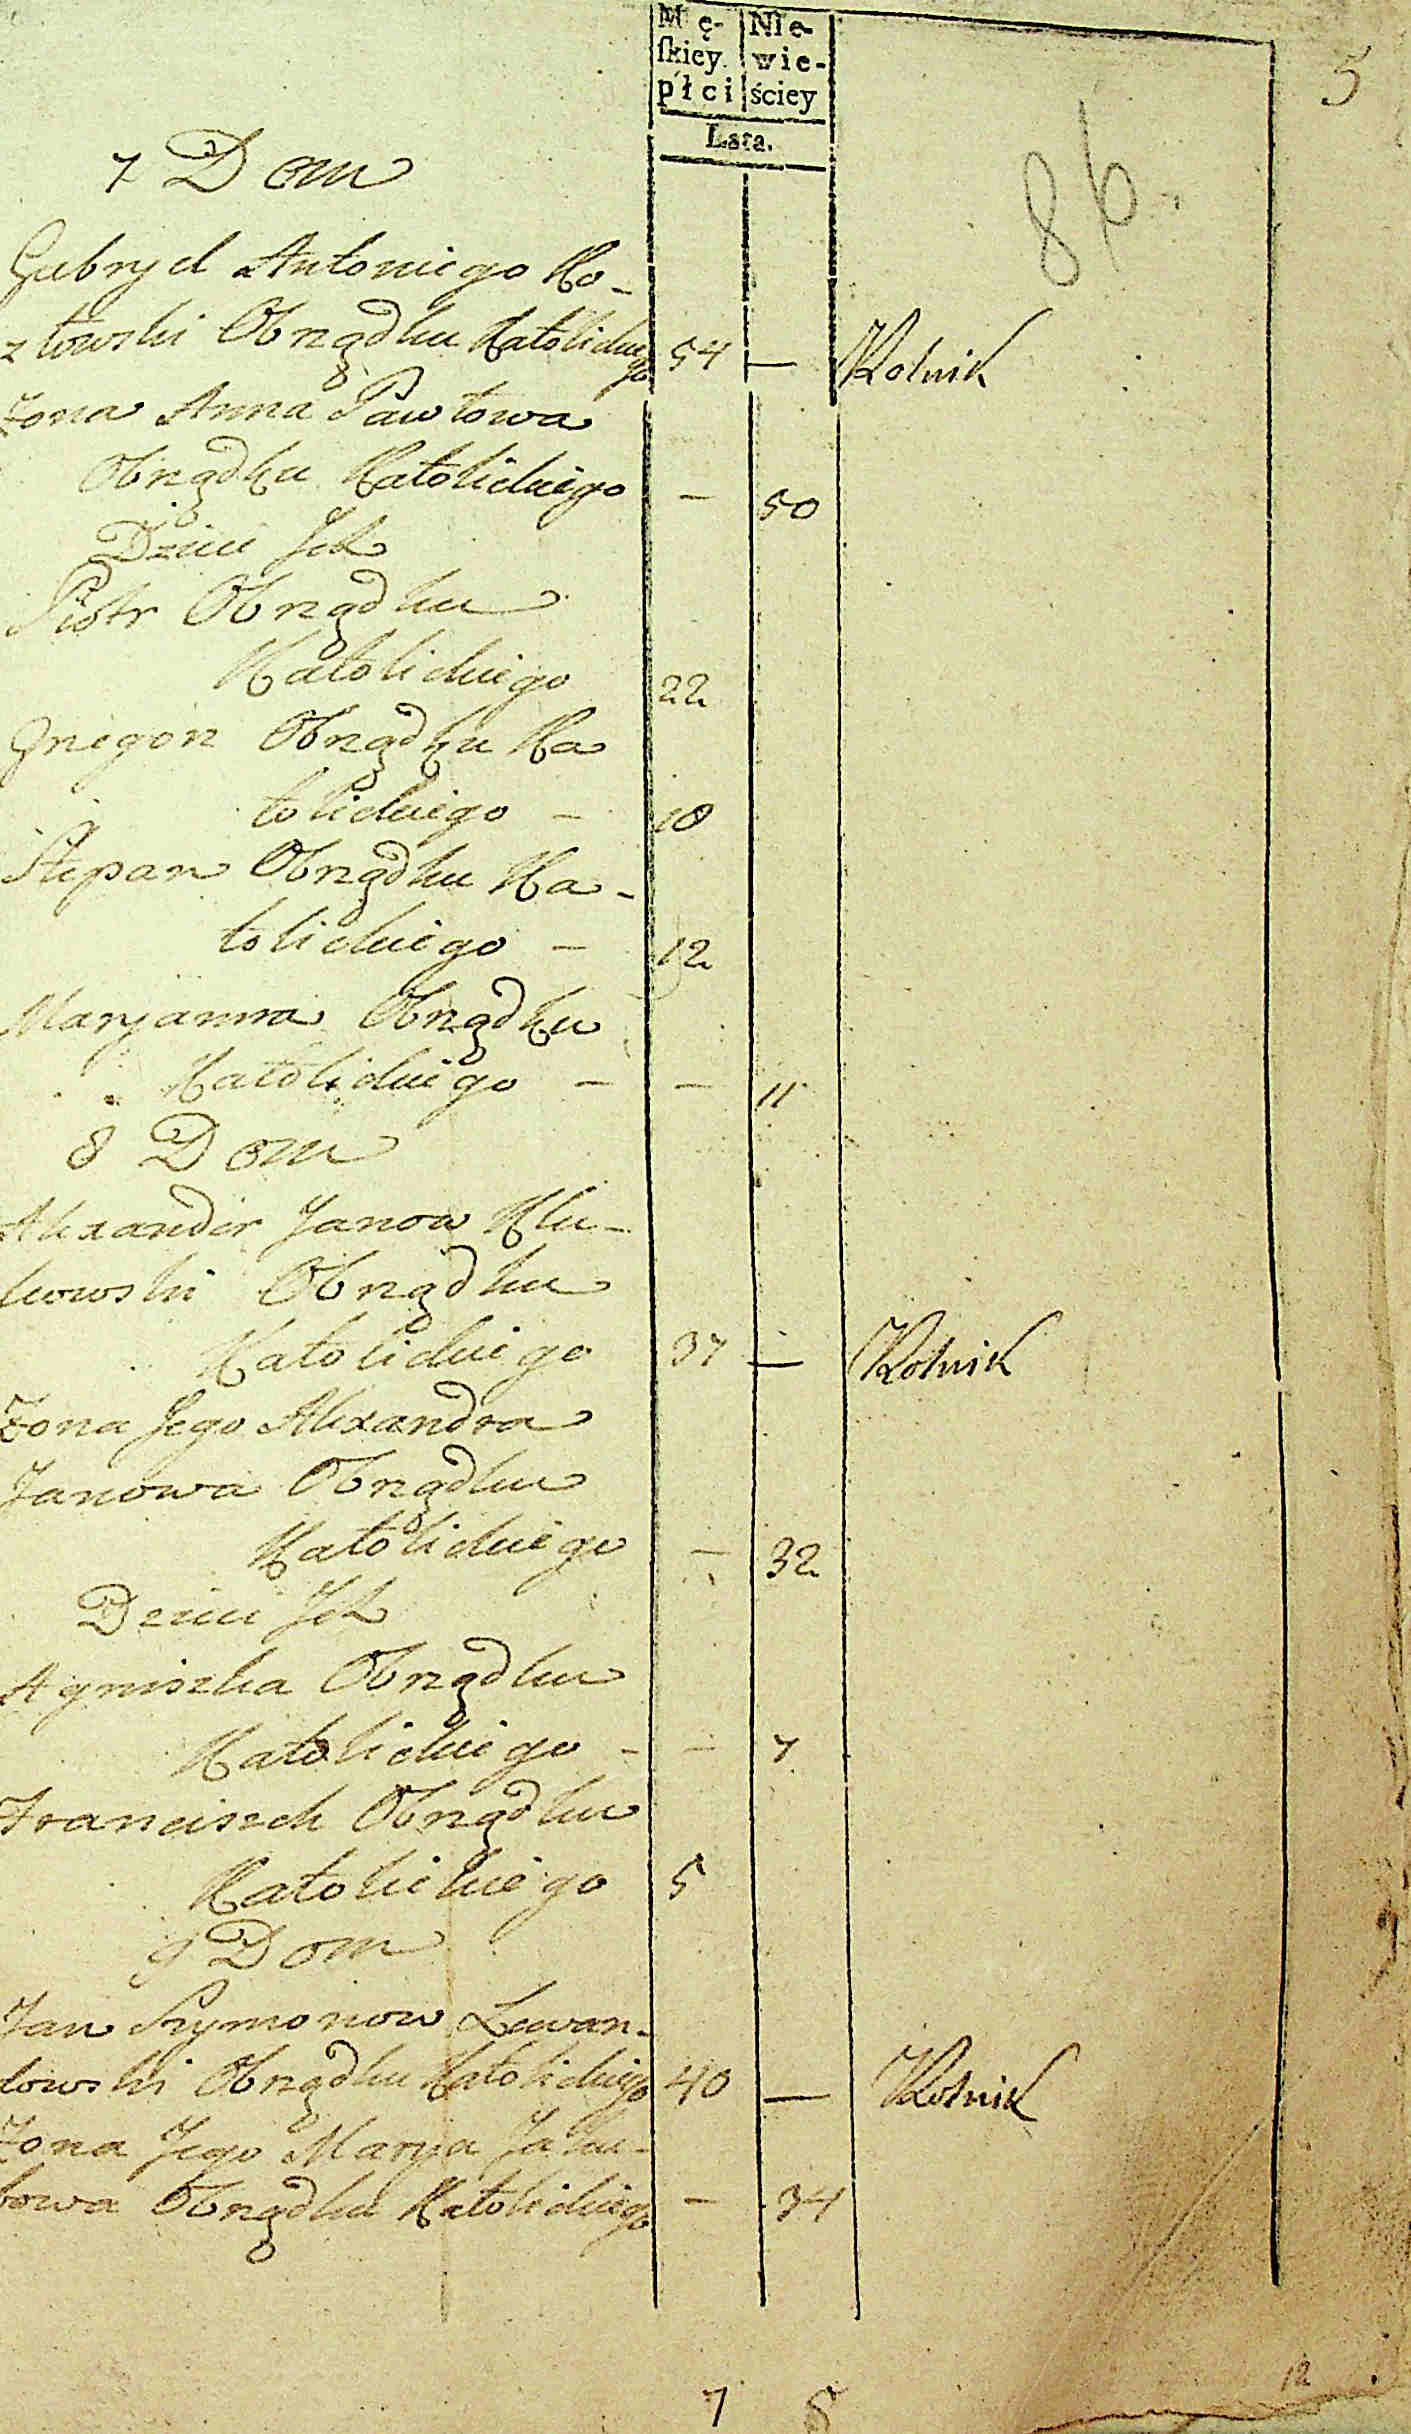 Mę- Nie-
skiey wie-
płci ściey
Lata.
5
86.
7 Dom
Gabryel Antoniego Ko-
złowski Obrządku Katolickiego 54 — Rolnik
Żona Anna Pawłowa
Obrządku Katolickiego — 50
Dzieci Ich
Piotr Obrządku
Katolickiego 22
Gregorz Obrządku Ka
tolickiego — 18
Stepan Obrządku Ka-
tolickiego — 12
Maryanna Obrządku
Katolickiego — — 11
8 Dom
Alexander Janow Klu-
kowski Obrządku
Katolickiego 37 — Rolnik
Żona Jego Alexandra
Janowa Obrządku
Katolickiego — 32
Dzieci Ich
Agniszka Obrządku
Katolickiego — — 7
Franciszek Obrządku
Katolickiego 5
9 Dom
Jan Szymonow Lewan-
dowski Obrządku Katolickiego 40 — Rolnik
Żona Jego Marya Jaku-
bowa Obrządku Katolickiego — 34
7 5
12